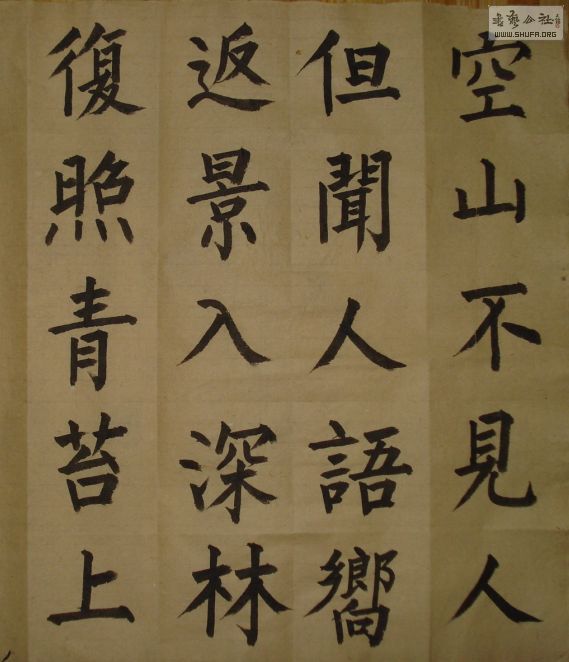 空山不見人
但聞人語嚮
返景入深林
復照青苔上
WWW.SHUFA.ORG